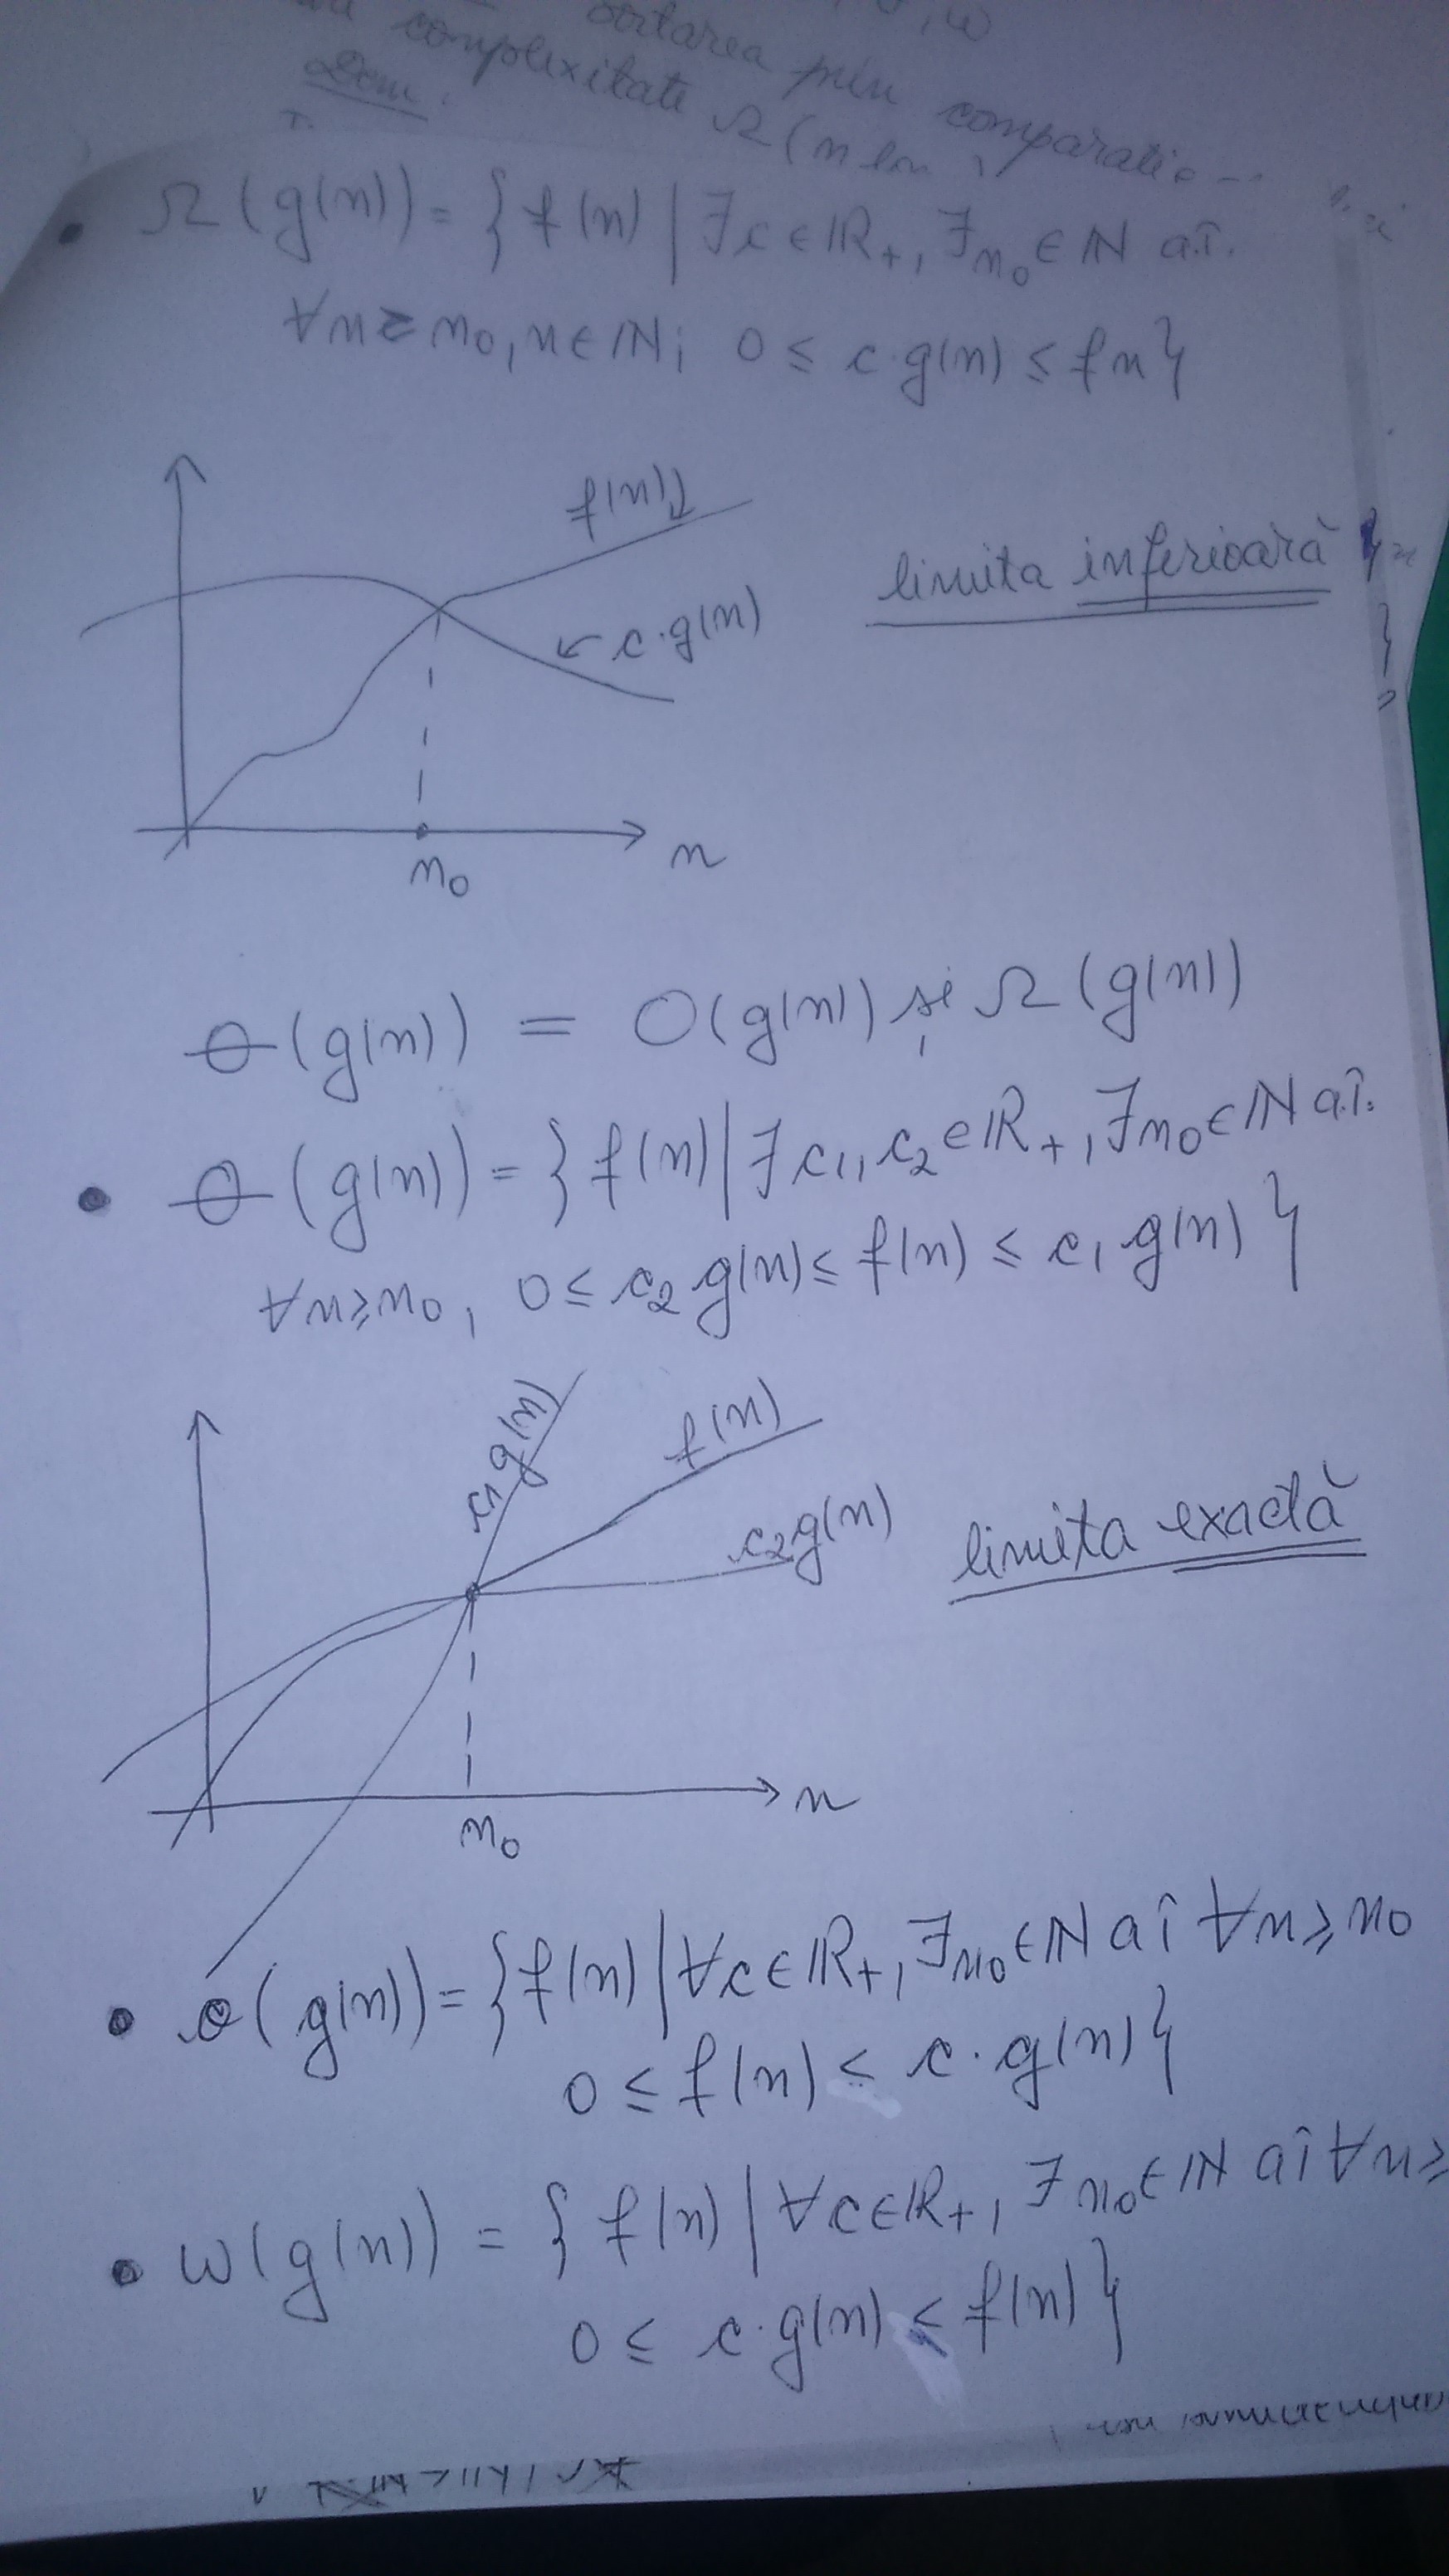 sortarea prin comparatie
complexitate Ω(n
Dem.
• Ω(g(n)) = {f(n) | ∃c∈ℝ₊, ∃n₀∈ℕ a.î.
∀n≥n₀, n∈ℕ; 0 ≤ c·g(n) ≤ fn}
f(n)
limita inferioară
c·g(n)
n₀
n
Θ(g(n)) = O(g(n)) și Ω(g(n))
• Θ(g(n)) = {f(n) | ∃c₁, c₂∈ℝ₊, ∃n₀∈ℕ a.î.
∀n≥n₀, 0 ≤ c₂ g(n) ≤ f(n) ≤ c₁ g(n)}
c₁ g(n)
f(n)
c₂g(n)
limita exactă
n
n₀
• o(g(n)) = {f(n) | ∀c∈ℝ₊, ∃n₀∈ℕ aî ∀n≥n₀
0 ≤ f(n) < c·g(n)}
• ω(g(n)) = {f(n) | ∀c∈ℝ₊, ∃n₀∈ℕ aî ∀n≥
0 ≤ c·g(n) < f(n)}